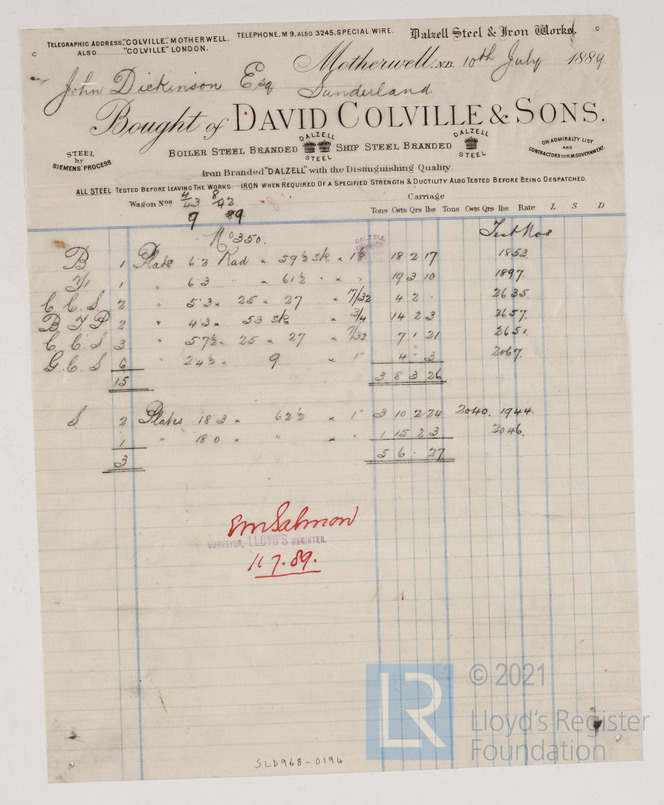 TELEGRAPHIC ADDRESS, "COLVILLE," MOTHERWELL.
ALSO "COLVILLE" LONDON.
TELEPHONE, M 9. ALSO 3245, SPECIAL WIRE.
Dalzell Steel & Iron Works,
Motherwell, N.B. 10th July 1889
John Dickinson Esq Sunderland
Bought of DAVID COLVILLE & SONS.
STEEL by SIEMENS PROCESS
BOILER STEEL BRANDED DALZELL STEEL SHIP STEEL BRANDED DALZELL STEEL
ON ADMIRALTY LIST AND CONTRACTORS TO H.M. GOVERNMENT.
Iron Branded "DALZELL" with the Distinguishing Quality.
ALL STEEL TESTED BEFORE LEAVING THE WORKS. IRON WHEN REQUIRED OF A SPECIFIED STRENGTH & DUCTILITY ALSO TESTED BEFORE BEING DESPATCHED.
Wagon Nos 4/43 8/42
9 89
Carriage
Tons Cwts Qrs lbs Tons Cwts Qrs lbs Rate L S D
No 350. Test Nos
B 1 Plate 6.3 Rad × 59½ sk × 18 2 17 1853
1 " 6.3 × 61½ × 19 3 10 1897
C C S 2 " 5.3 × 25 × 27 × 7/32 4 2 - 2635
B T P 2 " 4.3 × 53 sk × 3/4 14 2 3 2657
C C S 3 " 57½ × 25 × 27 × 7/32 7 1 21 2651
G C S 6 " 24½ × 9 × 1" 4 - 3 2067
15 3 8 3 26
S 2 Plates 18.3 × 62½ × 1" 3 10 2 24 2040. 1944
1 " 18.0 × " × " 1 15 2 3 2046
3 5 6 - 27
EmSalmon
SURVEYOR, LLOYD'S REGISTER.
11.7.89.
© 2021
LR
Lloyd's Register
Foundation
SLD968-0194